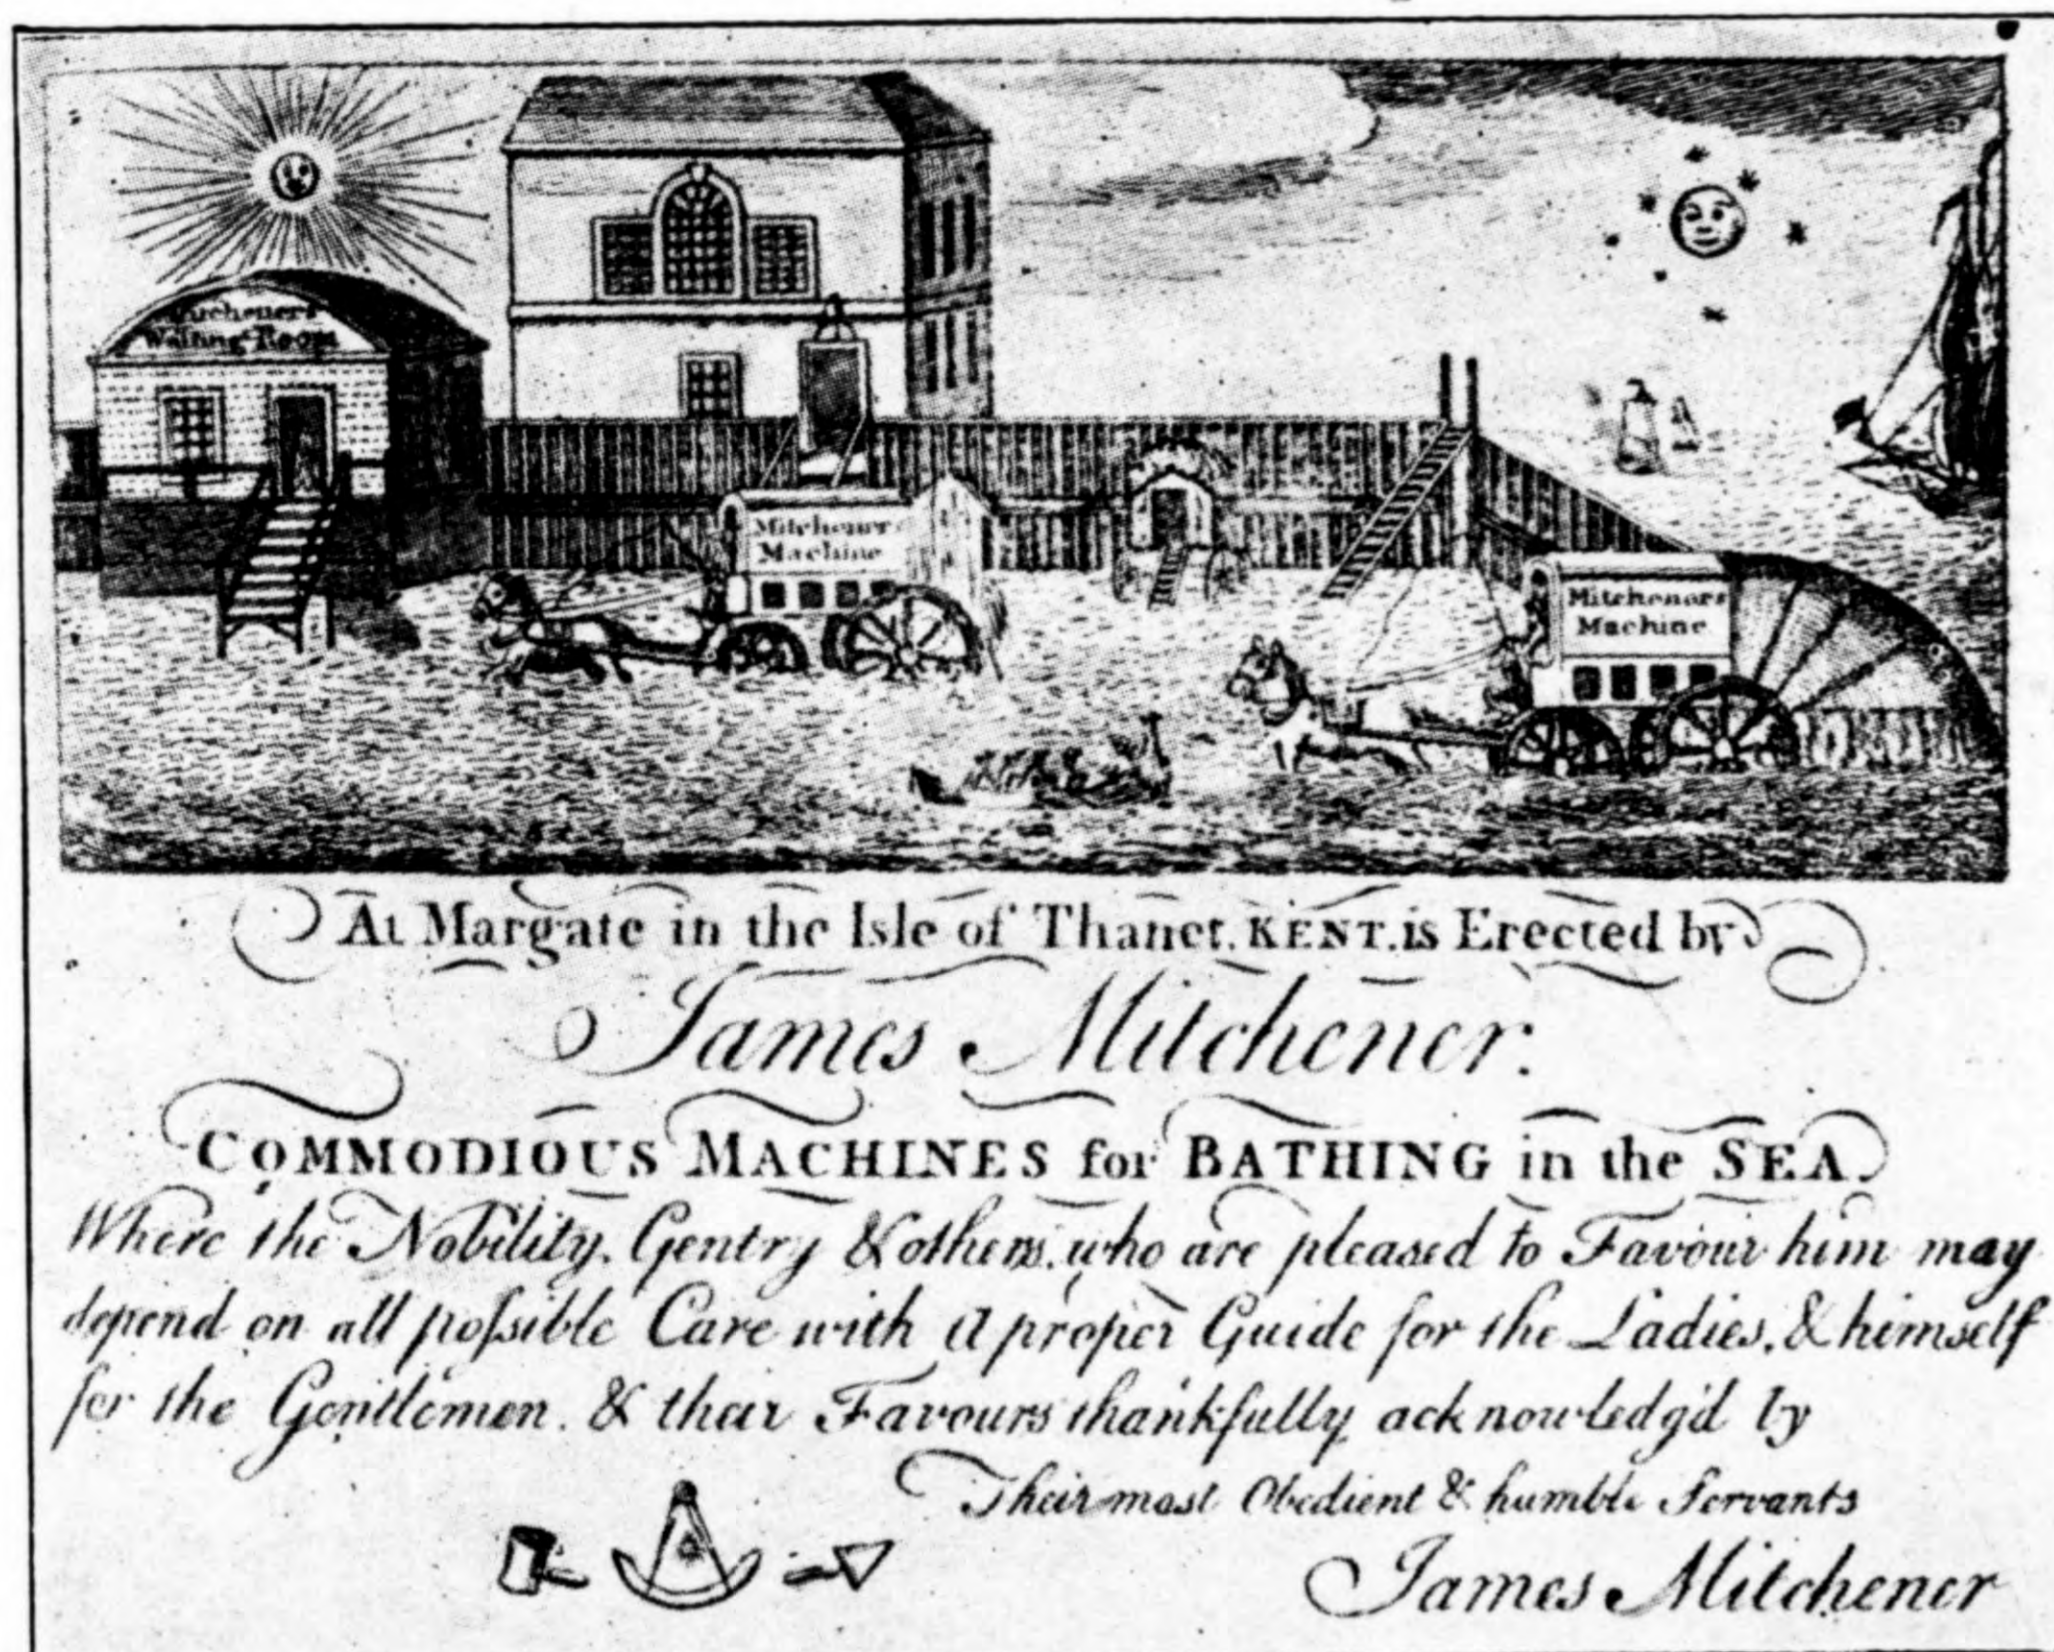 Mitchener's
Waiting Room
Mitcheners
Machine
Mitcheners
Machine
At Margate in the Isle of Thanet. KENT. is Erected by
James Mitchener.
COMMODIOUS MACHINES for BATHING in the SEA
Where the Nobility. Gentry & others, who are pleased to Favour him may
depend on all poſsible Care with a proper Guide for the Ladies, & himself
for the Gentlemen. & their Favours thankfully acknowledg'd by
Their most Obedient & humble Servants
James Mitchener